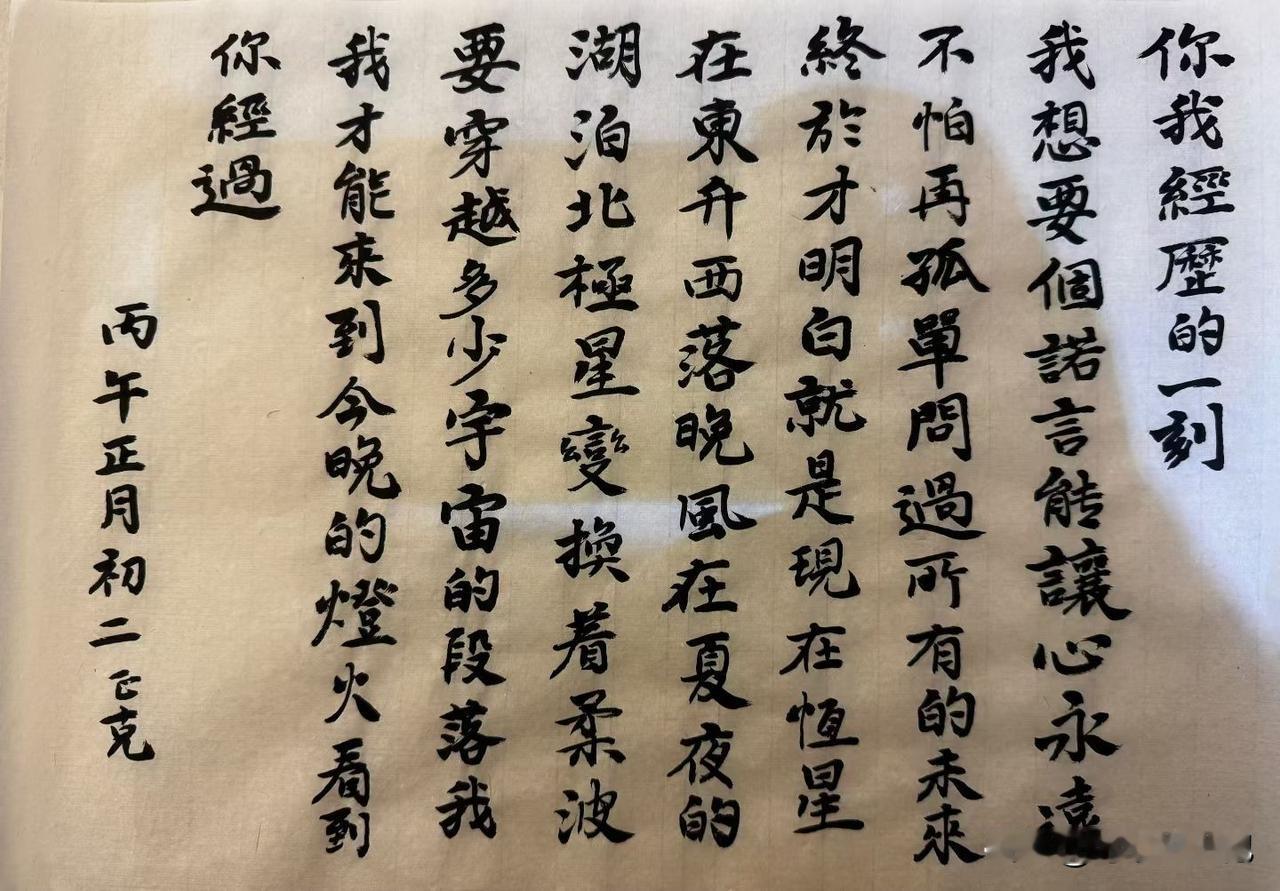 你我經歷的一刻
我想要個諾言能讓心永遠
不怕再孤單問過所有的未來
終於才明白就是現在恆星
在東升西落晚風在夏夜的
湖泊北極星變換着柔波
要穿越多少宇宙的段落我
我才能來到今晚的燈火看到
你經過
丙午正月初二正克